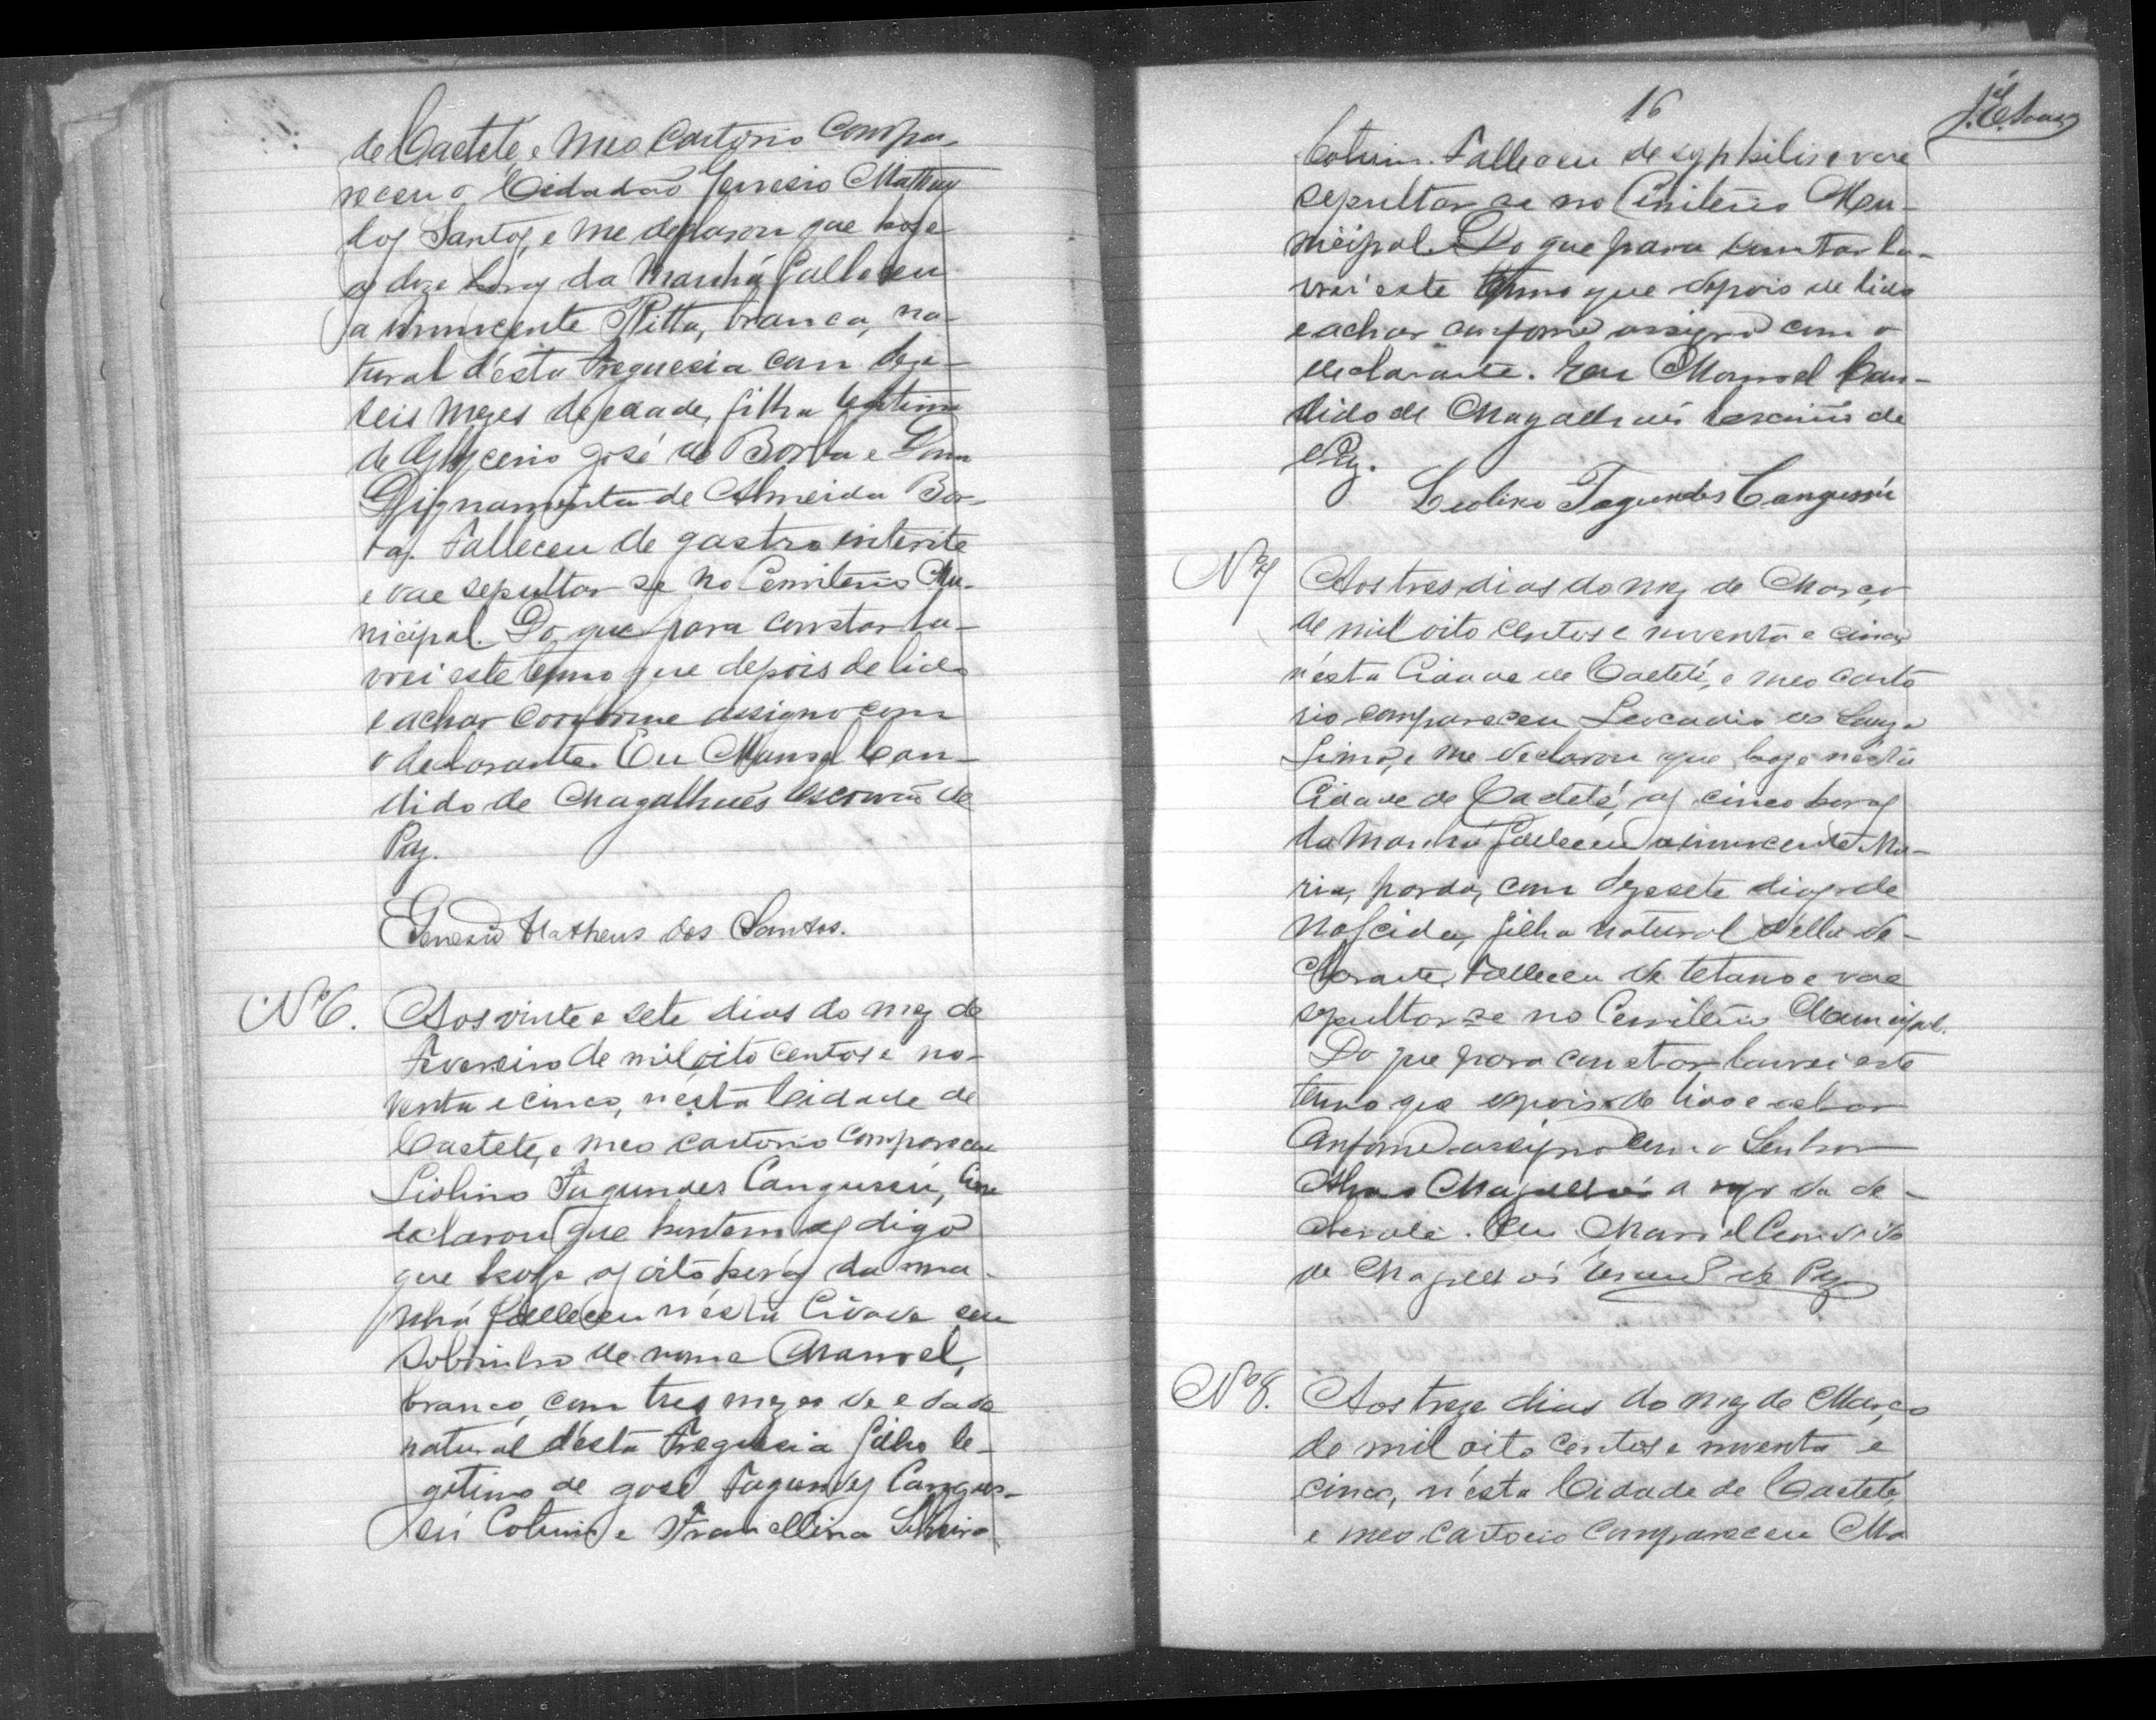 de Caetété, e meo Cartorio compa-
receu o Cidadão Genesio Matheus
dos Santos, e me declarou que hoje
as doze horas da manhá falleceu
a innocente Ritta, branca, na-
tural d'ésta freguesia com deze-
seis mezes de edade, filha legitima
de Glycerio José de Borba e Dona
de Almeida Bor-
bas. Falleceu de gastro interite
e vae sepultar se no Cemiterio Mu-
nicipal. Do que para constar la-
vrei este termo que depois de lido
e achar conforme assigno com
o declarante. Eu Manoel Can-
dido de Magalhães escrivão de
Paz.
Genesio Matheus dos Santos.
Nº 6. Aos vinte e sete dias do mez de
Fevereiro de mil oito centos e no-
venta e cinco, n'ésta Cidade de
Caetete, e meo cartorio compareceu
Liolino Fagundes Cangussú, e me
declarou que hontem as digo
que hoje as oito horas da ma-
nhá falleceu n'ésta Cidade seu
sobrinho de nome Manoel,
branco, com tres mezes de edade
natural d'ésta freguesia filho le-
gitimo de José Fagundes Cangus-
sú Cotrim e Francellina
16
Cotrim. Falleceu de syphilis e vae
sepultar se no Cimiterio Mu-
nicipal. Do que para constar la-
vrei este termo que depois de lido
e achar conforme assigno com o
declarante. Eu Manoel Can-
dido de Magalhães Escrivão de
Paz.
Liolino Fagundes Cangussú
Nº 7 Aos tres dias do mez de Março
de mil oito centos e noventa e cinco
n'ésta Cidade de Caeteté, e meo carto
rio compareceu Leocadia de Souza
Lima, e me declarou que hoje nésta
Cidade de Caeteté, as cinco horas
da manhá falleceu a innocente Ma-
ria, parda, com dezesete dias de
nascida, filha natural d'ella de-
clarante. Falleceu de tetano e vae
sepultar-se no Cemiterio Municipal.
Do que para constar lavrei este
termo que depois de lido e achar
conforme assigno com o Senhor
Magalhães a rogo da de-
clarante. Eu Manoel Candido
de Magalhães Escrivão de Paz
Nº 8. Aos treze dias do mez de Março
de mil oito centos e noventa e
cinco, n'ésta Cidade de Caeteté,
e meo cartorio compareceu Ma